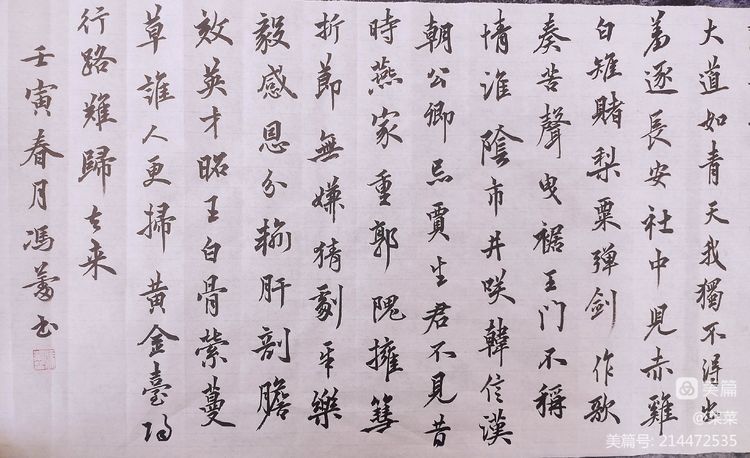 大道如青天我獨不得出
羞逐長安社中兒赤雞
白雉賭梨粟彈劍作歌
奏苦聲曳裾王门不稱
情淮陰市井咲韓信漢
朝公卿忌賈生君不見昔
時燕家重郭隗擁篲
折節無嫌猜劇辛樂
毅感恩分輸肝剖膽
效英才昭王白骨縈蔓
草誰人更掃黄金臺
行路難歸去来
壬寅春月馮书
美篇
美篇号: 214472535